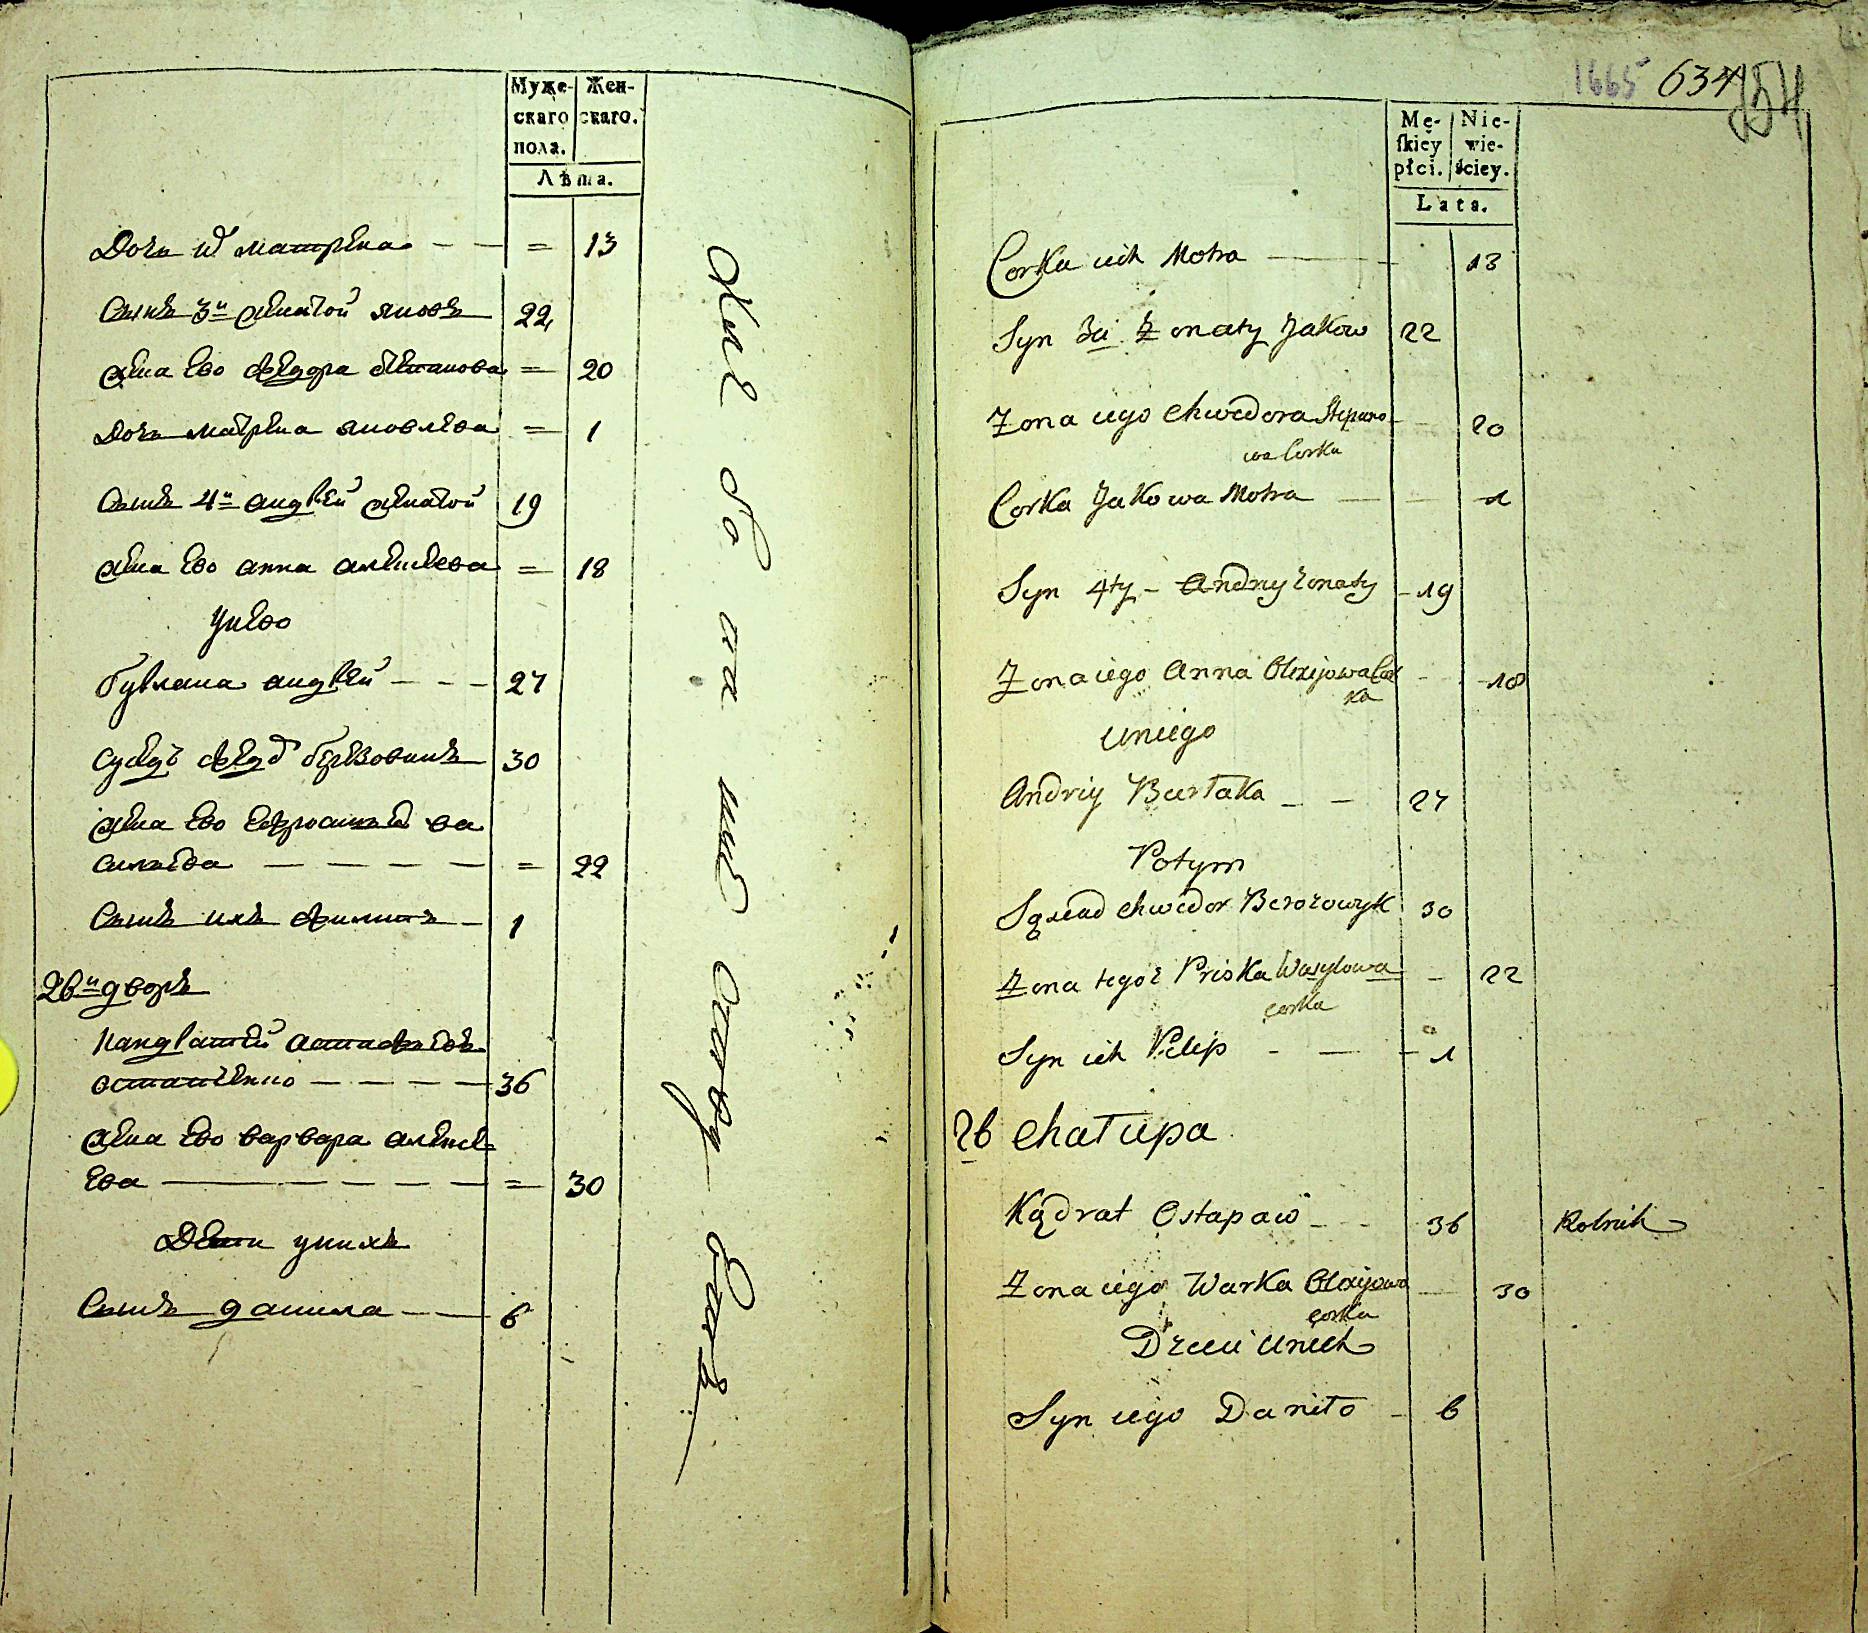 Муже-
скаго
пола.
Жен-
скаго.
Лѣта.
Дочь их матрена — — = 13
Сынъ 3й женатой яковъ 22
жена Ево федора степанова = 20
Дочь матрена яковлева = 1
Сынъ 4й андрей женатой 19
жена Ево анна алексеева = 18
у нево
бурлака андрей — — — 27
сусед федор березовикъ 30
жена Ево Ефросиния ва
силева — — — — — = 22
Сынъ ихъ филипъ — 1
26й дворъ
Кандратей астафьевъ
остапенко — — — — 36
жена Ево варвара алексе
Ева — — — — — = 30
Дети у нихъ
Сынъ данила — — 6
1665 634
254
Mę-
ſkiey
płci.
Nie-
wie-
ściey.
Lata.
Corka ich Motra — 13
Syn 3ci Żonaty Jakow 22
Żona iego Chwedora Stepano
wa Corka 20
Corka Jakowa Motra — — 1
Syn 4ty – Andriy żonaty – 19
Żona iego Anna Olexijowa Cor
ka 18
u niego
Andriy Burłaka — — 27
Potym
Sąsiad Chwedor Berozowyk 30
Żona tegoż Priska Wasylowa – 22
corka
Syn ich Pilip – — – 1
26 Chałupa
Kądrat Ostapow — — 36 Rolnik
Żona iego Warka Olexijowa — 30
corka
Dzieci u nich
Syn iego Daniło – 6